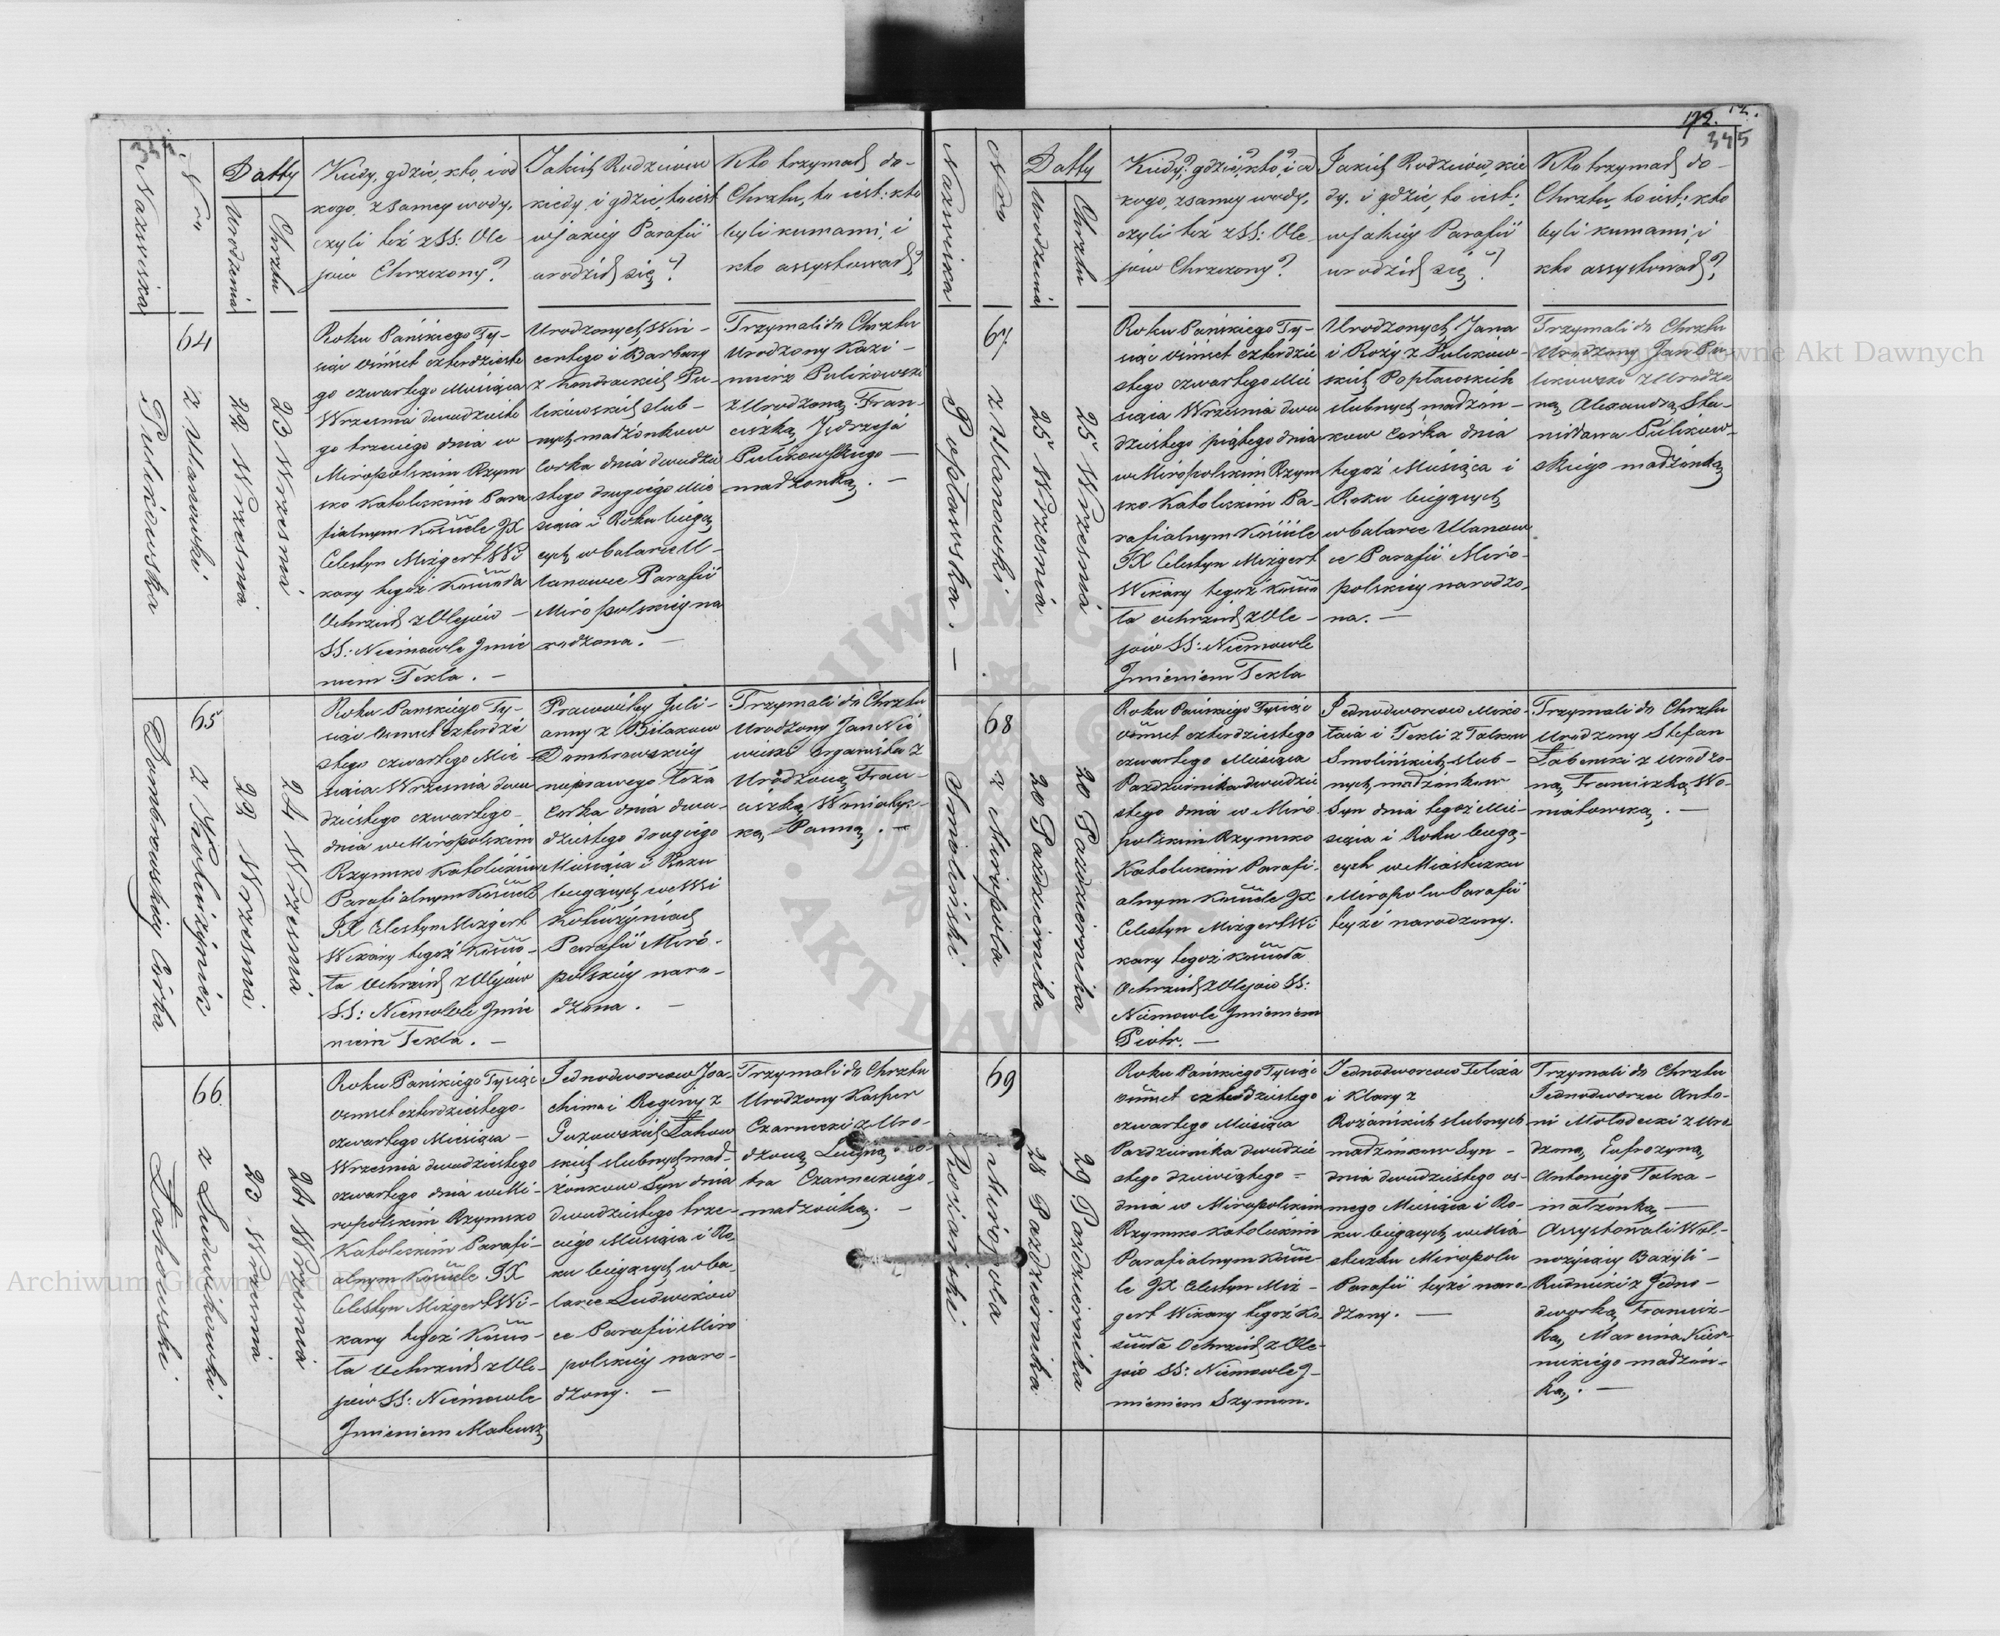 344.
Nazwiska
Nro
Datty
Urodzenia
Chrztu
Kiedy, gdzie, kto, i od
kogo, z samey wody,
czyli też z SS: Ole-
jow Chrzczony?
Jakich Rodziców
kiedy i gdzie, to iest
w jakiey Parafii
urodził się?
Kto trzymał do
Chrztu, to iest: kto
byli kumami, i
kto assystował?
Pulikowska
64
z Ulanowki
22 Wrzesnia
23 Wrzesnia
Roku Pańskiego Ty-
siąc ośmset czterdzieste
go czwartego Miesiąca
Wrzesnia dwudzieste
go trzeciego dnia w
Miropolskim Rzym
sko Katolickim Para
fialnym Kościele JX
Celestyn Mizgert Wi
kary tegoż Kościoła
Ochrzcił z Olejow
SS: Niemowle Jmie
niem Tekla. —
Urodzonych Win-
centego i Barbary
z Kondrackich Pu-
likowskich slub-
nych małżonkow
Corka dnia dwudzie
stego drugiego Mie
siąca i Roku bieżą
cych w batarce U-
lanowce Parafii
Miropolskiey na
rodzona. —
Trzymali do Chrztu
Urodzony Kazi-
mierz Pulikowski
z Urodzoną Fran-
ciszką Jędrzeja
Pulikowskiego —
małżonką. —
Dombrowskiey Córka
65
22 Wrzesnia
24 Wrzesnia
Roku Pańskiego Ty-
siąc ośmset czterdzie
stego czwartego Mie
siąca Wrzesnia dwu
dziestego czwartego
dnia w Miropolskim
Rzymsko Katolickim
Parafialnym Kościele
JX Celestyn Mizgert
Wikary tegoż Kościo-
ła Ochrzcił z Olejow
SS: Niemowle Jmie
niem Tekla. —
Prawowitey Juli-
anny z
Dombrowskiey
nieprawego Łoża
Corka dnia dwu-
dziestego drugiego
Miesiąca i Roku
bieżących we Wsi
Parafii Miro-
polskiey naro-
dzona. —
Trzymali do Chrztu
Urodzony Jan
Organista z
Urodzoną Fran-
ciszką
Panną. —
Łahowski
66
z Ludwikowki
23 Wrzesnia
24 Wrzesnia
Roku Pańskiego Tysiąc
ośmset czterdziestego
czwartego Miesiąca —
Wrzesnia dwudziestego
czwartego dnia w Mi-
ropolskim Rzymsko
Katolickim Parafi-
alnym Kościele JX
Celestyn Mizgert Wi-
kary tegoż Kościo-
ła Ochrzcił z Ole-
jow SS: Niemowle
Jmieniem Mateusz
Jednodworcow Joa-
chima i Reginy z
Guzowskich Łahow
skich slubnych mał-
żonkow Syn dnia
dwudziestego trze-
ciego Miesiąca i Ro-
ku bieżących w ba-
tarce Ludwikow
ce Parafii Miro
polskiey naro-
dzony. —
Trzymali do Chrztu
Urodzony Kasper
Czarnecki z Uro-
dzoną Łucyną
Czarneckiego
małżonką. —
172.
345
Nazwiska
Nro
Datty
Urodzenia
Chrztu
Kiedy? gdzie? kto? i od
kogo, z samey wody,
czyli też z SS: Ole-
jow Chrzczony?
Jakich Rodziców, kie
dy, i gdzie, to iest:
w jakiey Parafii
urodził się?
Kto trzymał do
Chrztu, to iest: kto
byli kumami, i
kto assystował?
Popławska. —
67
z Ulanowki
25 Wrzesnia
25 Wrzesnia
Roku Pańskiego Ty-
siąc ośmset czterdzie
stego czwartego Mie
siąca Wrzesnia dwu
dziestego piątego dnia
w Miropolskim Rzym
sko Katolickim Pa-
rafialnym Kościele
JX Celestyn Mizgert
Wikary tegoż Kościo
ła ochrzcił z Ole-
jow SS: Niemowle
Jmieniem Tekla
Urodzonych Jana
i Roży z Pulikow-
skich Popławskich
slubnych małżon-
kow Corka dnia
tegoż Miesiąca i
Roku bieżących
w batarce Ulanow
ce Parafii Miro-
polskiey narodzo
na. —
Trzymali do Chrztu
Urodzony Jan Pu-
likowski z Urodzo
ną Alexandrą Sta-
nisława Pulikow-
skiego małżonką
Smoliński
68
z Miropola
20 Pazdziernika
20 Pazdziernika
Roku Pańskiego Tysiąc
ośmset czterdziestego
czwartego Miesiąca
Pazdziernika dwudzie
stego dnia w Miro
polskim Rzymsko
Katolickim Parafi-
alnym Kościele JX
Celestyn Mizgert Wi
kary tegoż Kościoła
Ochrzcił z Olejow SS:
Niemowle Jmieniem
Piotr. —
Jednodworcow Miko-
łaia i Tekli z
Smolińskich slub-
nych małżonkow
Syn dnia tegoż Mie-
siąca i Roku bieżą-
cych w Miasteczku
Miropolu Parafii
teyże narodzony.
Trzymali do Chrztu
Urodzony Stefan
z Urodzo
ną Franciszką Wo-
niatowską. —
Rożański
69
z Miropola
28 Pazdziernika
29 Pazdziernika
Roku Pańskiego Tysiąc
ośmset czterdziestego
czwartego Miesiąca
Pazdziernika dwudzie
stego dziewiątego =
dnia w Miropolskim
Rzymsko Katolickim
Parafialnym Koście
le JX Celestyn Miz-
gert Wikary tegoż Ko-
ścioła Ochrzcił z Ole-
jow SS: Niemowle J-
mieniem Szymon.
Jednodworcow Felixa
i Klary z
Rożańskich slubnych
małżonkow Syn —
dnia dwudziestego os-
mego Miesiąca i Ro-
ku bieżących w Mia
steczku Miropolu
Parafii teyże naro
dzony. —
Trzymali do Chrztu
Jednodworzec Anto-
ni Mołodecki z Uro
dzoną Eufrozyną
Antoniego
małżonką —
Assystowali Wol-
nożyiący Bazyli —
Rudnicki z Jedno-
dworką Francisz-
ką Marcina
małżon-
ką. —
Archiwum Główne Akt Dawnych
Archiwum Główne Akt Dawnych